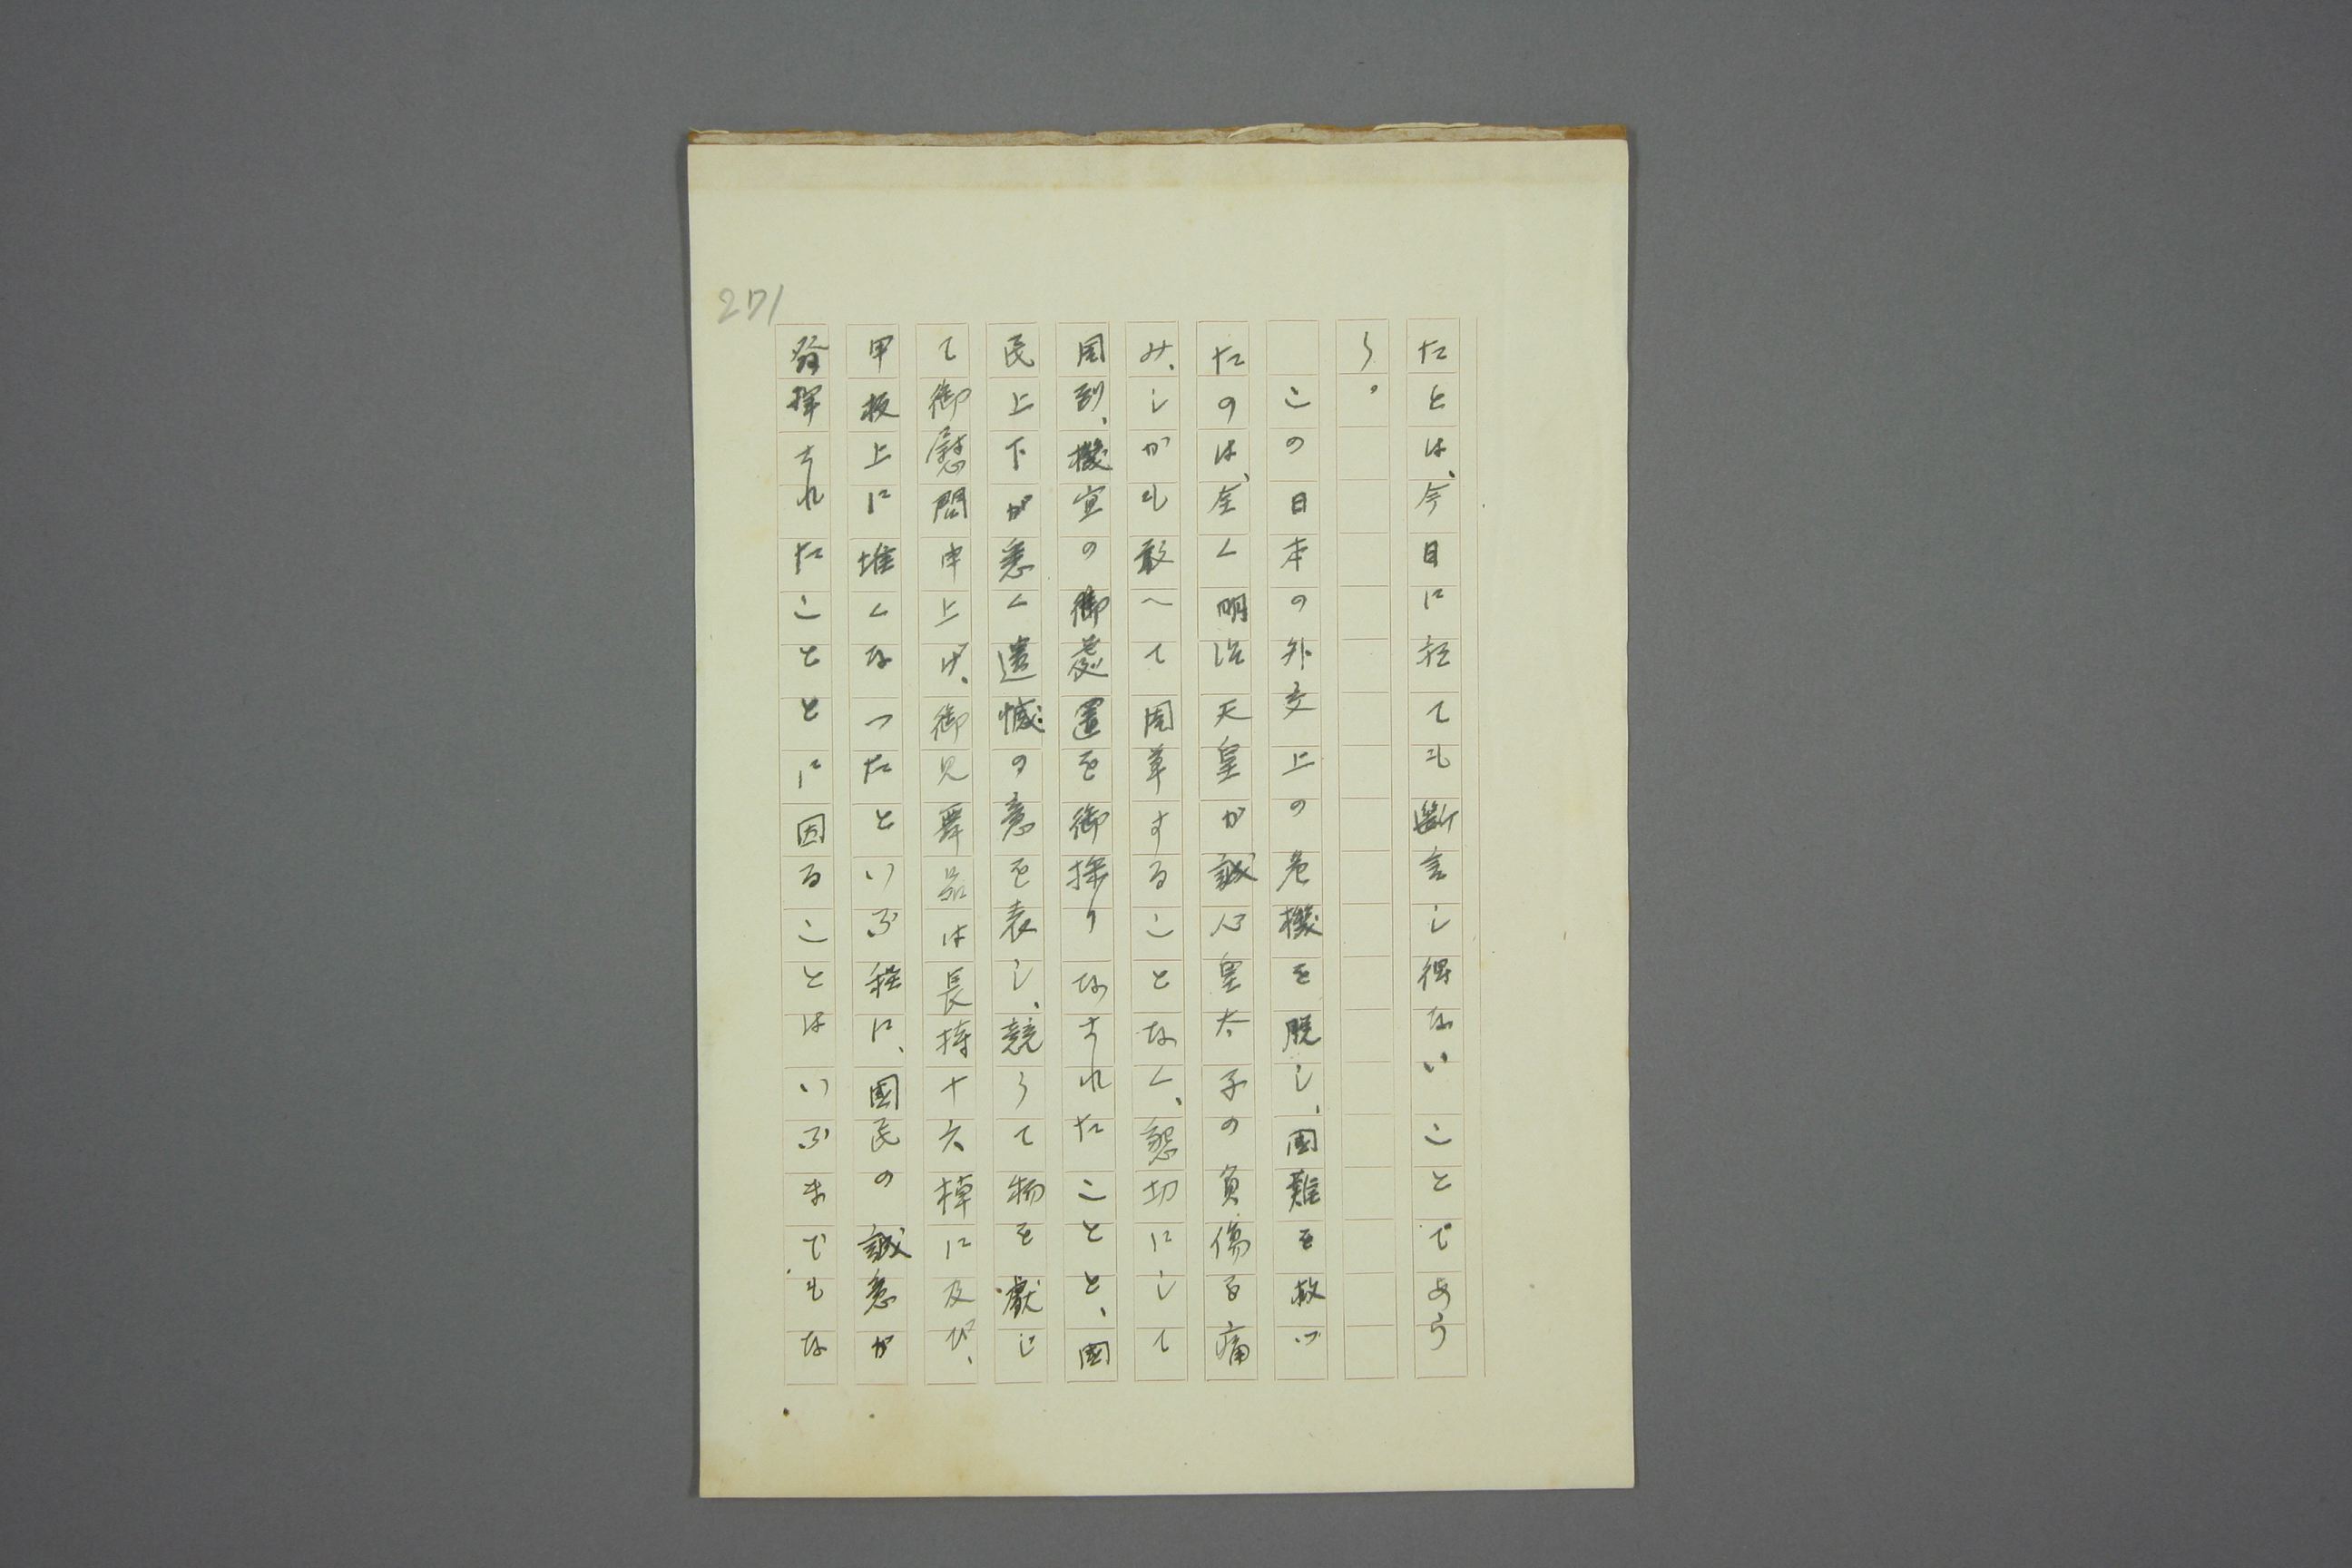 271
たとは、今日に於ても斷言し得ないことであら
う。
この日本の外交上の危機を脱し、國難を救つ
たのは、全く明治天皇が誠心皇太子の負傷を痛
み、しかも敢へて周章することなく、懇切にして
周到、機宜の御處置を御採りなされたことと、國
民上下が悉く遺憾の意を表し、競うて物を獻じ
て御慰問申上げ、御見舞品は長持十六棹に及び、
甲板上に堆くなつたといふ程に、國民の誠意が
發揮されたこととに因ることはいふまでもな